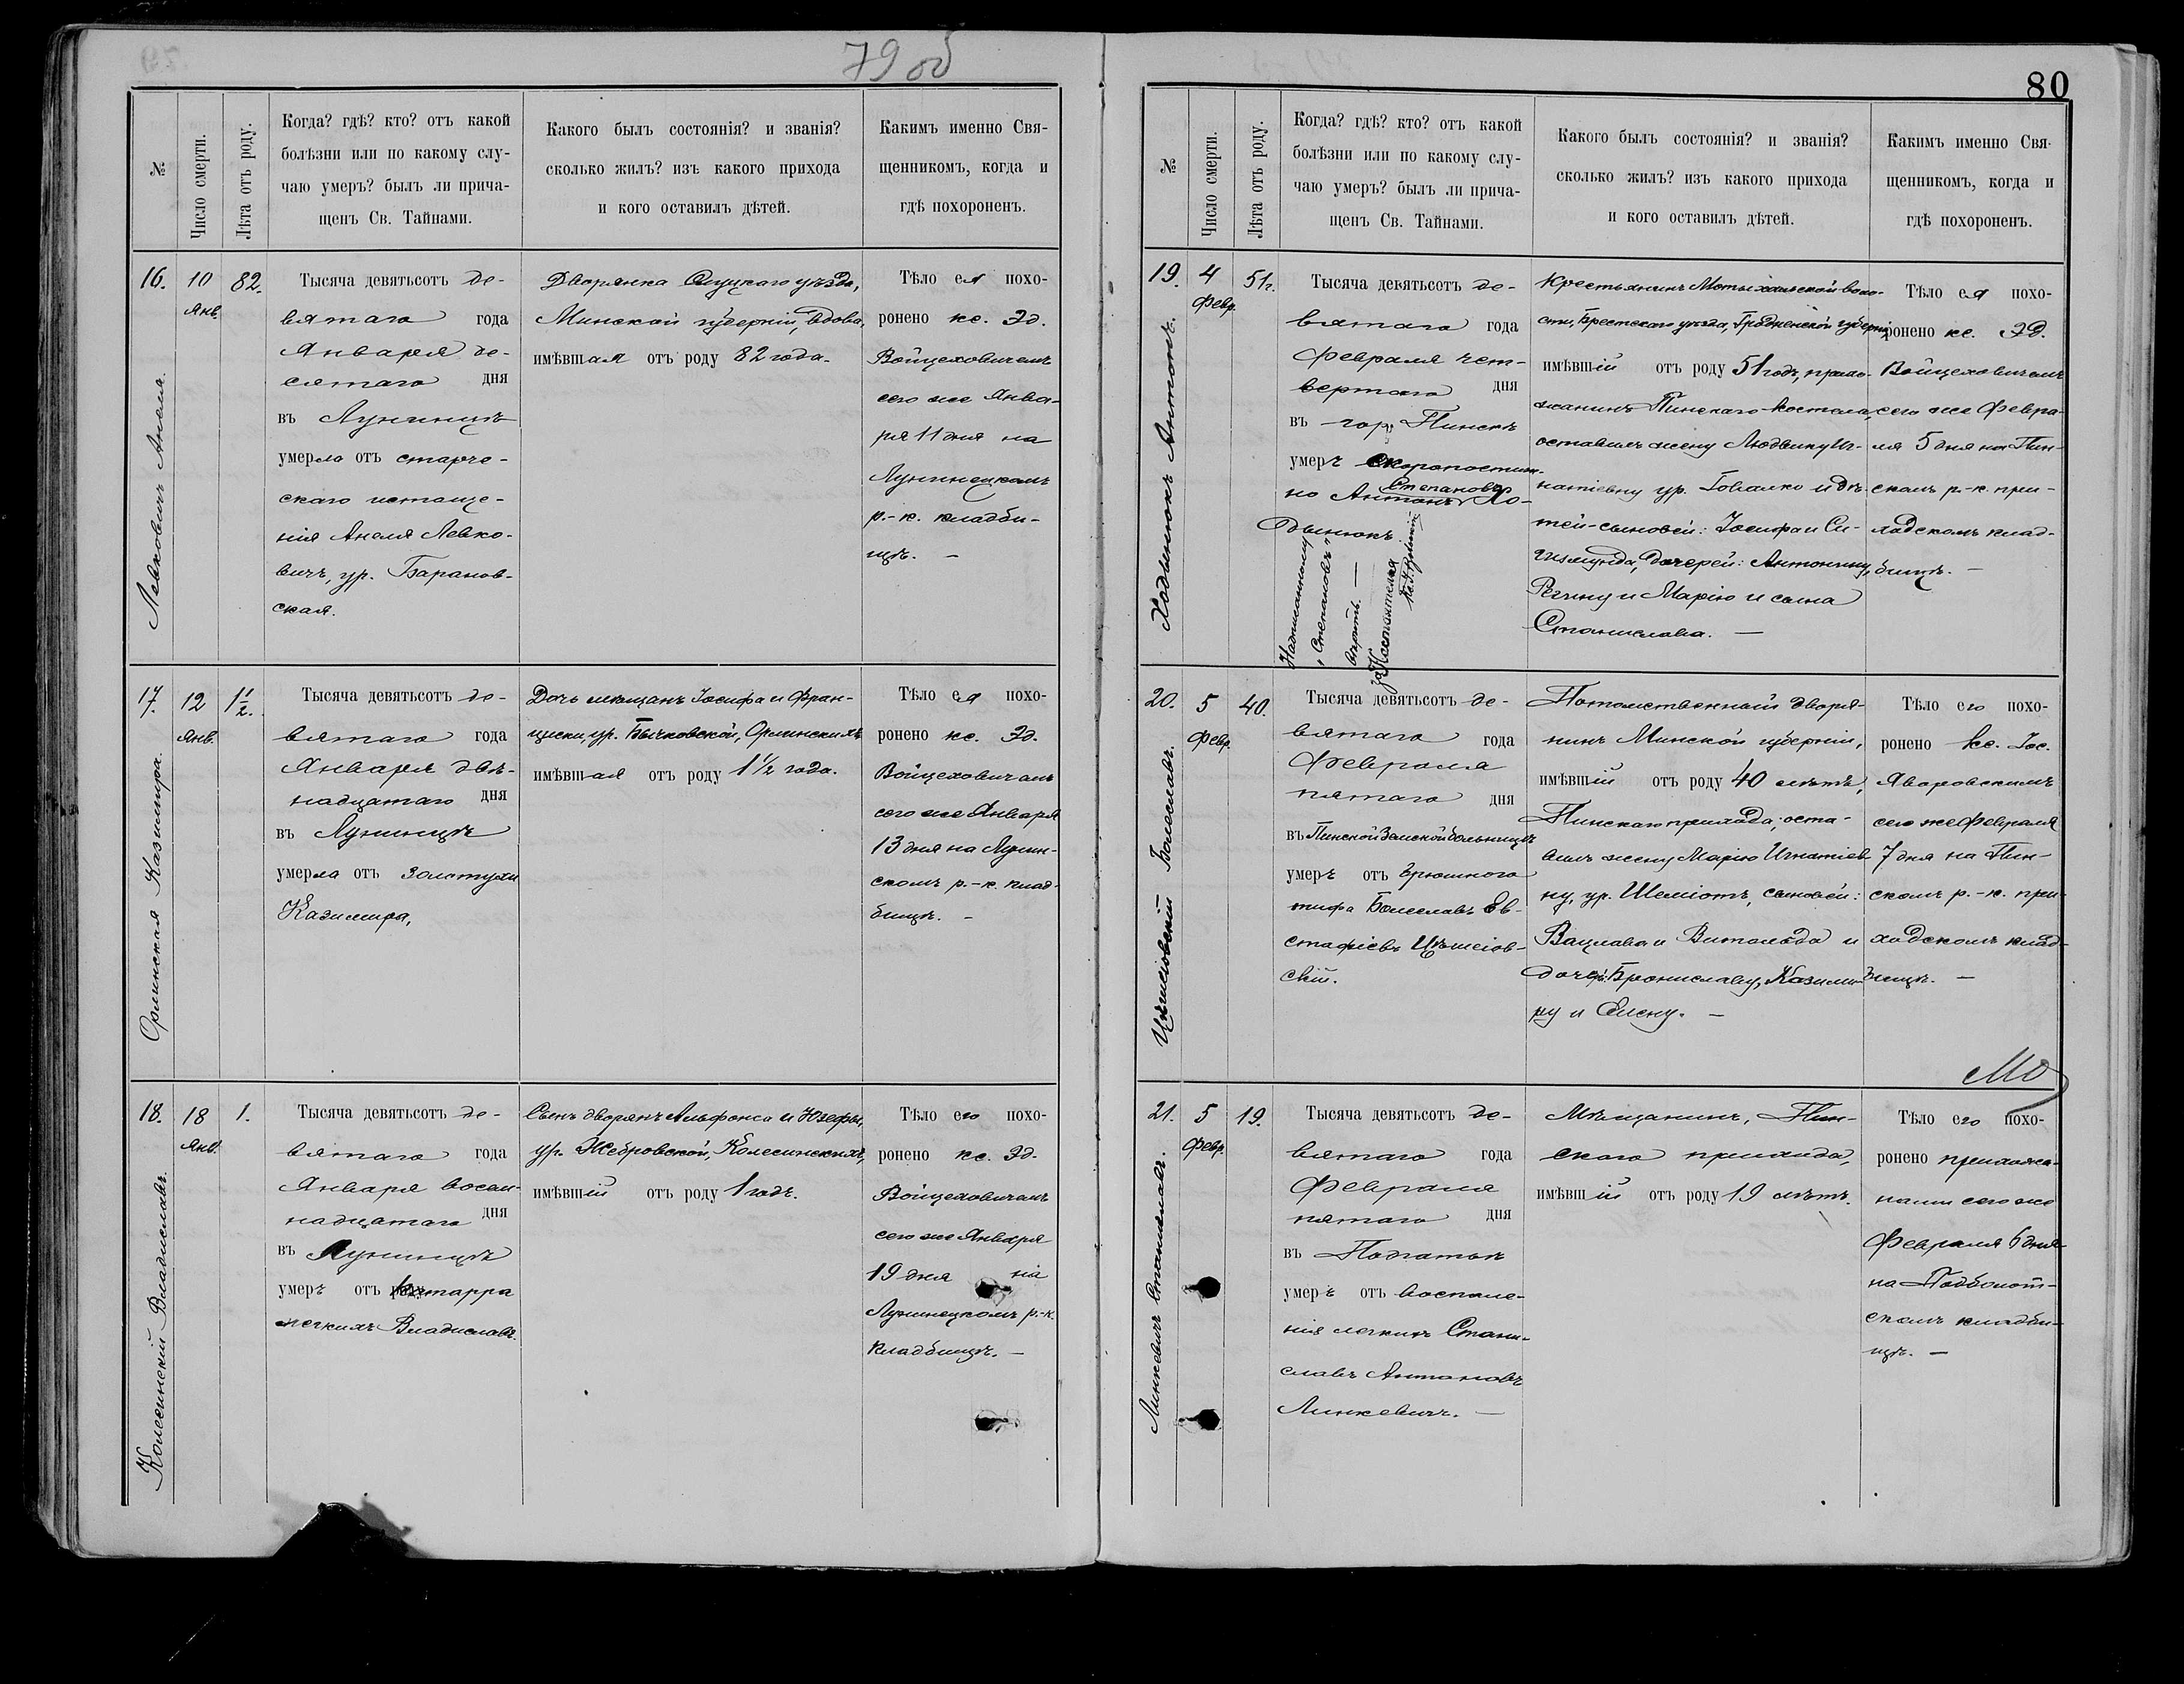 79 об
№
Число смерти.
Лѣта отъ роду.
Когда? гдѣ? кто? отъ какой
болѣзни или по какому слу-
чаю умеръ? былъ ли прича-
щенъ Св. Тайнами.
Какого былъ состоянія? и званія?
сколько жилъ? изъ какого прихода
и кого оставилъ дѣтей.
Какимъ именно Свя-
щенникомъ, когда и
гдѣ похороненъ.
16.
Левковичъ Анеля.
10
Янв.
82.
Тысяча девятьсотъ де-
вятаго года
Января де-
сятаго дня
въ Лунинцѣ
умерла отъ старче-
скаго истоще-
нія Анеля Левко-
вичъ, ур. Баранов-
ская.
Дворянка Слуцкаго уѣзда,
Минской губерніи, вдова,
имѣвшая отъ роду 82 года.
Тѣло ея похо-
ронено кс. Эд.
Войцеховичемъ
сего же Янва-
ря 11 дня на
Лунинецкомъ
р.-к. кладби-
щѣ. —
17.
Орлинская Казимира.
12
Янв.
1½.
Тысяча девятьсотъ де-
вятаго года
Января двѣ-
надцатаго дня
въ Лунинцѣ
умерла отъ золотухи
Казимира,
Дочь мѣщанъ Іосифа и Фран-
циски, ур. Бычковской, Орлинскихъ
имѣвшая отъ роду 1½ года.
Тѣло ея похо-
ронено кс. Эд.
Войцеховичемъ
сего же Января
13 дня на Лунин-
скомъ р.-к. клад-
бищѣ. —
18.
Колесинскій Владиславъ.
18
Янв.
1.
Тысяча девятьсотъ де-
вятаго года
Января восем-
надцатаго дня
въ Лунинцѣ
умеръ отъ катарра
легкихъ Владиславъ.
Сынъ дворянъ Альфонса и Юзефы,
ур. Жебровской, Колесинскихъ,
имѣвшій отъ роду 1 годъ.
Тѣло его похо-
ронено кс. Эд.
Войцеховичемъ
сего же Января
19 дня на
Лунинецкомъ р.-к.
кладбищѣ. —
80
№
Число смерти.
Лѣта отъ роду.
Когда? гдѣ? кто? отъ какой
болѣзни или по какому слу-
чаю умеръ? былъ ли прича-
щенъ Св. Тайнами.
Какого былъ состоянія? и званія?
сколько жилъ? изъ какого прихода
и кого оставилъ дѣтей.
Какимъ именно Свя-
щенникомъ, когда и
гдѣ похороненъ.
19.
Ходынюкъ Антонъ.
4
Февр.
51г.
Тысяча девятьсотъ де-
вятаго года
Февраля чет-
вертаго дня
въ гор. Пинскѣ
умеръ скоропостиж-
но Антонъ Степановъ Хо-
дынюкъ.
Надписанному
„Степановъ“
вѣрить. —
за Настоятеля
Крестьянинъ Мотыкальской воло-
сти, Брестскаго уѣзда, Гродненской губерніи
имѣвшій отъ роду 51 годъ, прихо-
жанинъ Пинскаго костела,
оставилъ жену Людвику Иг-
натіевну ур. Говалко и дѣ-
тей-сыновей: Іосифа и Си-
гизмунда, дочерей: Антонину,
Регину и Марію и сына
Станислава. —
Тѣло ея похо-
ронено кс. Эд.
Войцеховичемъ
сего же Февра-
ля 5 дня на Пин-
скомъ р.-к. при-
ходскомъ клад-
бищѣ. —
20.
Болеславъ.
5
Февр.
40.
Тысяча девятьсотъ де-
вятаго года
Февраля
пятаго дня
въ Пинской Земской больницѣ
умеръ отъ брюшного
тифа Болеславъ Ев-
стафіевъ
скій.
Потомственный дворя-
нинъ Минской губерніи,
имѣвшій отъ роду 40 лѣтъ,
Пинскаго прихода; оста-
вилъ жену Марію Игнатіев-
ну, ур. Шеміотъ, сыновей:
Вацлава и Витольда и
дочерь: Брониславу, Казими-
ру и Елену. —
Тѣло его похо-
ронено кс. Іос.
Яворовскимъ
сего же Февраля
7 дня на Пин-
скомъ р.-к. при-
ходскомъ клад-
бищѣ. —
21.
Линкевичъ Станиславъ.
5
Февр.
19.
Тысяча девятьсотъ де-
вятаго года
Февраля
пятаго дня
въ
умеръ отъ воспале-
нія легкихъ Стани-
славъ Антоновъ
Линкевичъ. —
Мѣщанинъ, Пин-
скаго прихода,
имѣвшій отъ роду 19 лѣтъ.
Тѣло его похо-
ронено прихожа-
нами сего же
Февраля 6 дня
на Подболот-
скомъ кладби-
щѣ. —